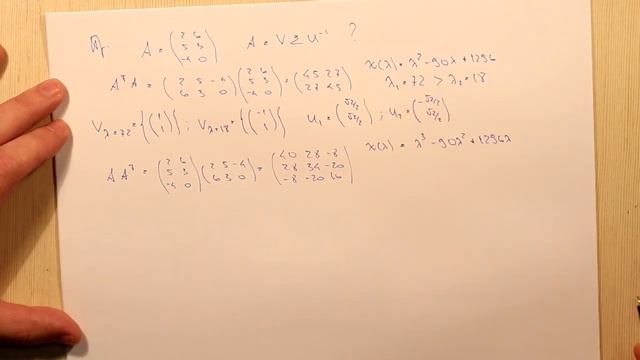 Př. A = (2 6; 5 3; -4 0) A = V Σ U⁻¹ ?
AᵀA = (2 5 -4; 6 3 0)(2 6; 5 3; -4 0) = (45 27; 27 45) χ(λ) = λ² - 90λ + 1296
λ₁ = 72 > λ₂ = 18
V_λ=72 = {(1; 1)} ; V_λ=18 = {(-1; 1)} u₁ = (√2/2; √2/2) ; u₂ = (-√2/2; √2/2)
A Aᵀ = (2 6; 5 3; -4 0)(2 5 -4; 6 3 0) = (40 28 -8; 28 34 -20; -8 -20 16) χ(λ) = λ³ - 90λ² + 1296λ